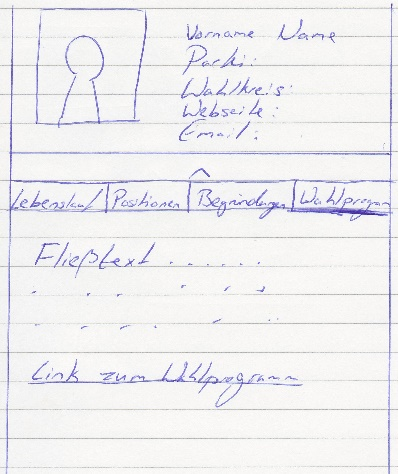 Vorname Name
Partei:
Wahlkreis:
Webseite:
Email:
Lebenslauf Positionen Begründungen Wahlprogram
Fließtext .......
Link zum Wahlprogramm